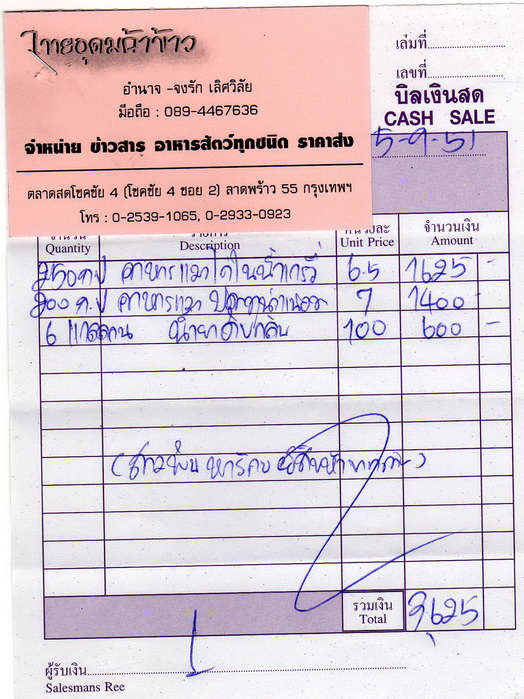 ไทยอุดมค้าข้าว
อำนาจ -จงรัก เลิศวิลัย
มือถือ : 089-4467636
จำหน่าย ข้าวสาร อาหารสัตว์ทุกชนิด ราคาส่ง
ตลาดสดโชคชัย 4 (โชคชัย 4 ซอย 2) ลาดพร้าว 55 กรุงเทพฯ
โทร : 0-2539-1065, 0-2933-0923
เล่มที่
เลขที่
บิลเงินสด
CASH SALE
5-9-51
จำนวน รายการ หน่วยละ จำนวนเงิน
Quantity Description Unit Price Amount
250 อาหารแมว ไก่ในน้ำเกรวี่ 6.5 1625 -
200 อาหารแมว 7 1400 -
6 แกลลอน น้ำยาดับกลิ่น 100 600 -
(สามพัน หกร้อย ยี่สิบห้าบาท)
รวมเงิน
Total 3,625
ผู้รับเงิน
Salesmans Ree